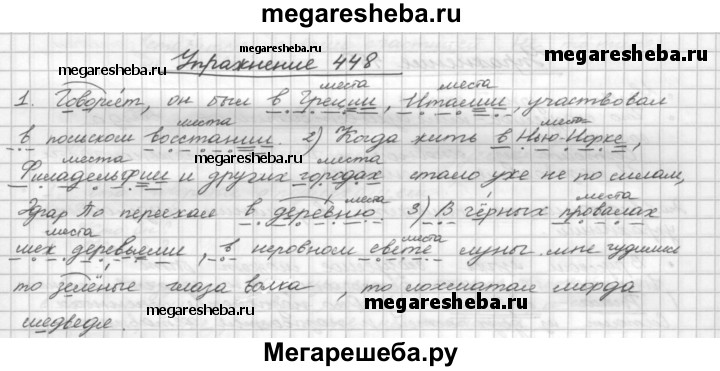 megaresheba.ru
Упражнение 448
места места
1. Говорят, он был в Греции, Италии, участвовал
места места
в польском восстании. 2) Когда жить в Нью-Йорке,
места места
Филадельфии и других городах стало уже не по силам,
места
Эдгар По переехал в деревню. 3) В чёрных провалах
места места
меж деревьями, в неровном свете луны мне чудились
то зелёные глаза волка, то лохматая морда
медведя.
megaresheba.ru
megaresheba.ru
megaresheba.ru
megaresheba.ru
megaresheba.ru
Мегарешеба.ру